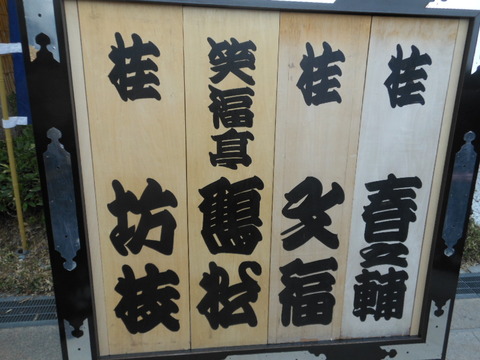 桂 春之輔
桂 文福
笑福亭 鶴松
桂 坊枝